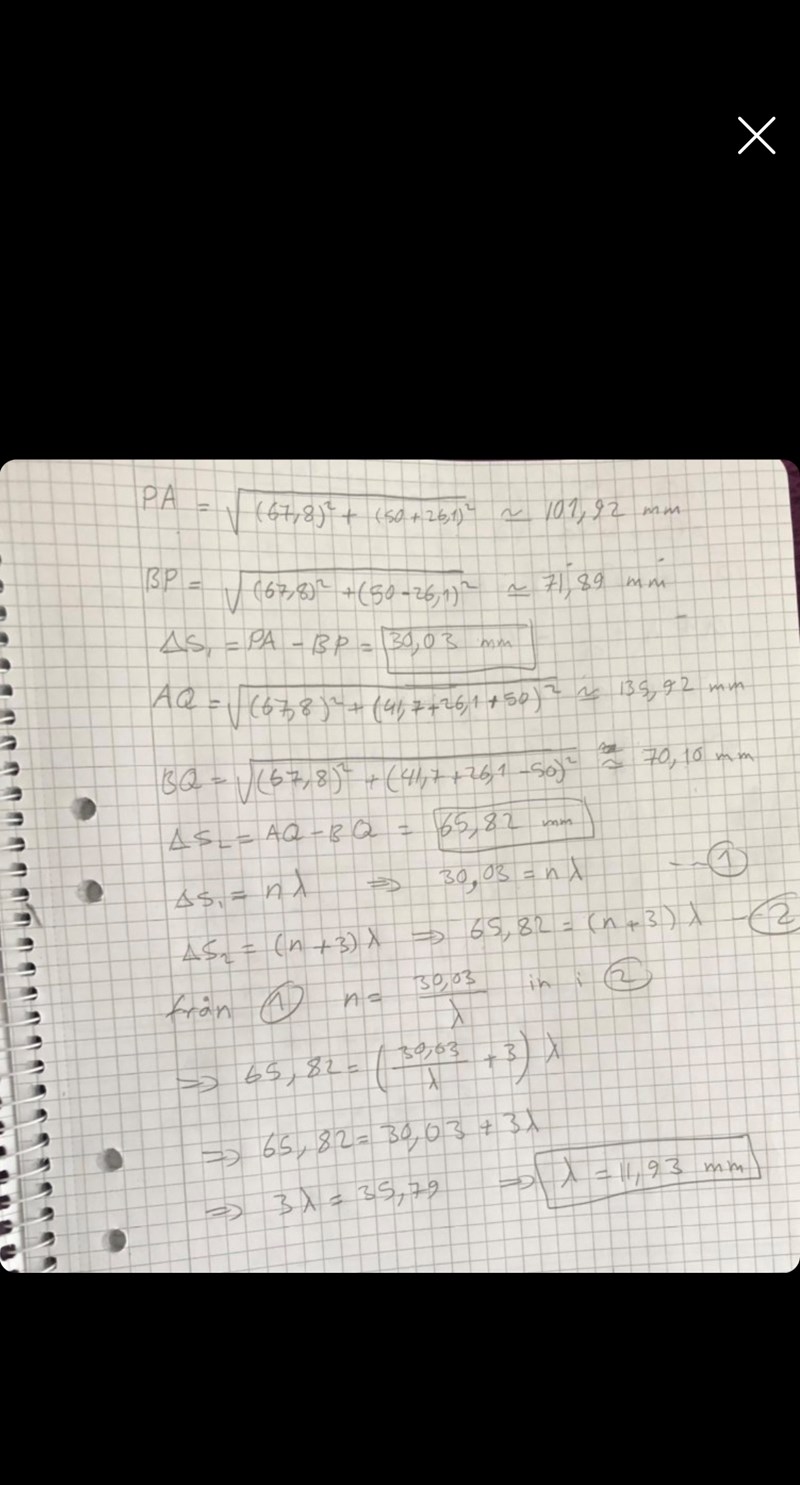 PA = √((67,8)² + (50+26,1)²) ≃ 101,92 mm
BP = √((67,8)² + (50-26,1)²) ≃ 71,89 mm
ΔS₁ = PA - BP = 30,03 mm
AQ = √((67,8)² + (41,7+26,1+50)²) ≃ 135,92 mm
BQ = √((67,8)² + (41,7+26,1-50)²) ≃ 70,10 mm
ΔS₂ = AQ - BQ = 65,82 mm
ΔS₁ = nλ ⇒ 30,03 = nλ --①
ΔS₂ = (n+3)λ ⇒ 65,82 = (n+3)λ --②
från ① n = 30,03/λ in i ②
⇒ 65,82 = (30,03/λ + 3) λ
⇒ 65,82 = 30,03 + 3λ
⇒ 3λ = 35,79 ⇒ λ = 11,93 mm